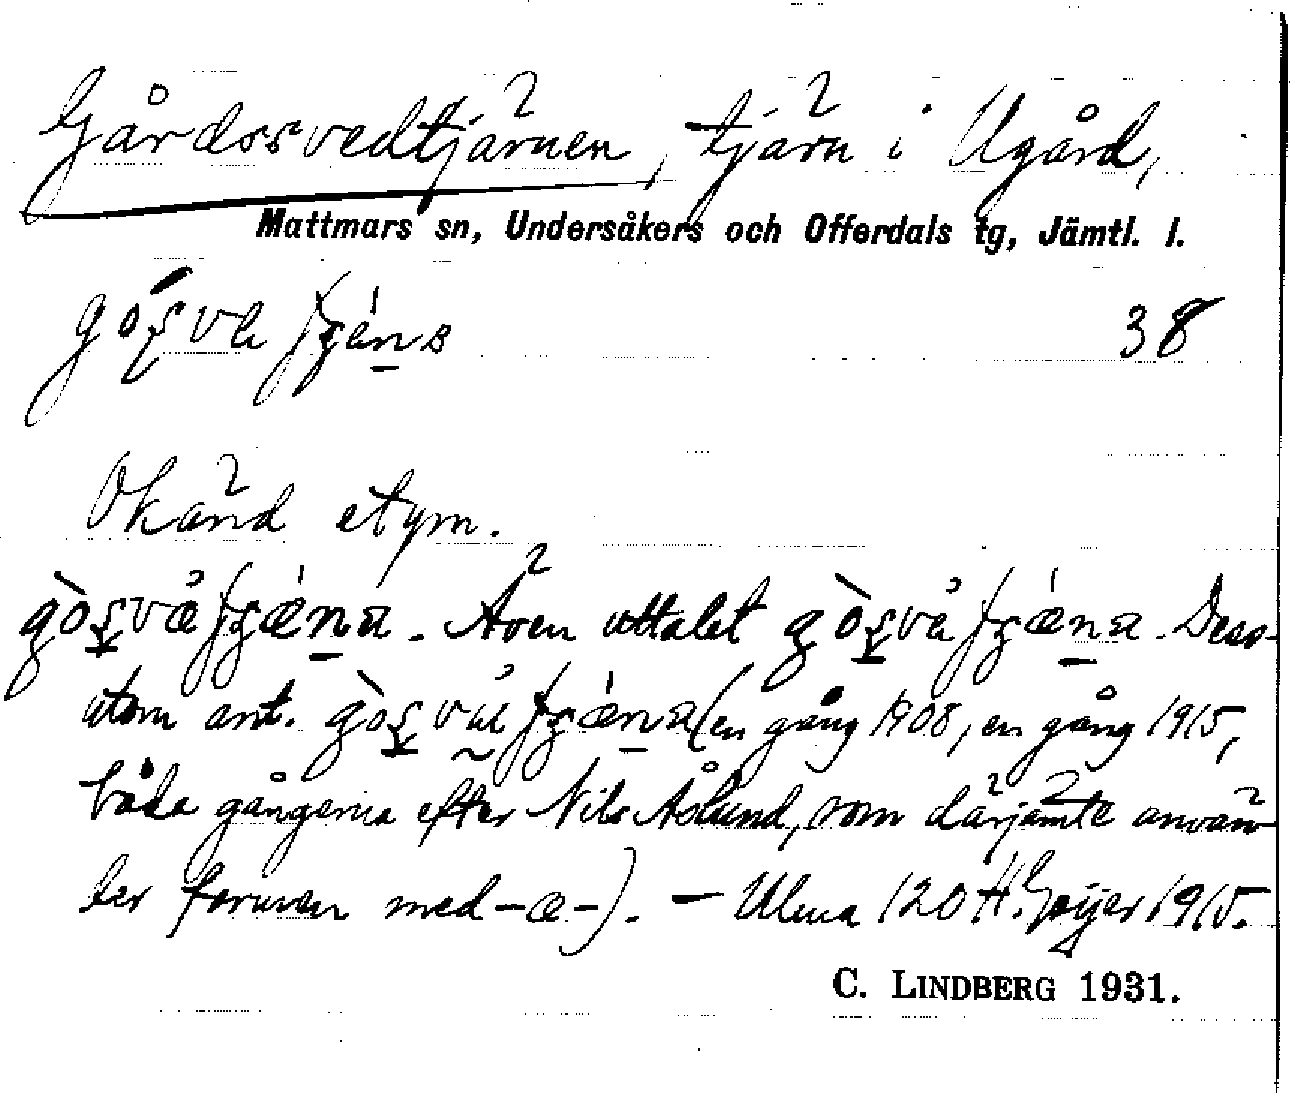 Gårdssvedtjärnen, tjärn i Ugård,
Mattmars sn, Undersåkers och Offerdals tg, Jämtl. l.
38
Okänd etym.
Även uttalet Dess-
utom ant. (en gång 1908, en gång 1915,
båda gångerna efter Nils Åslund, som därjämte använ-
der formen med -æ-). — Ulma 120 H. Geijer 1915.
C. LINDBERG 1931.